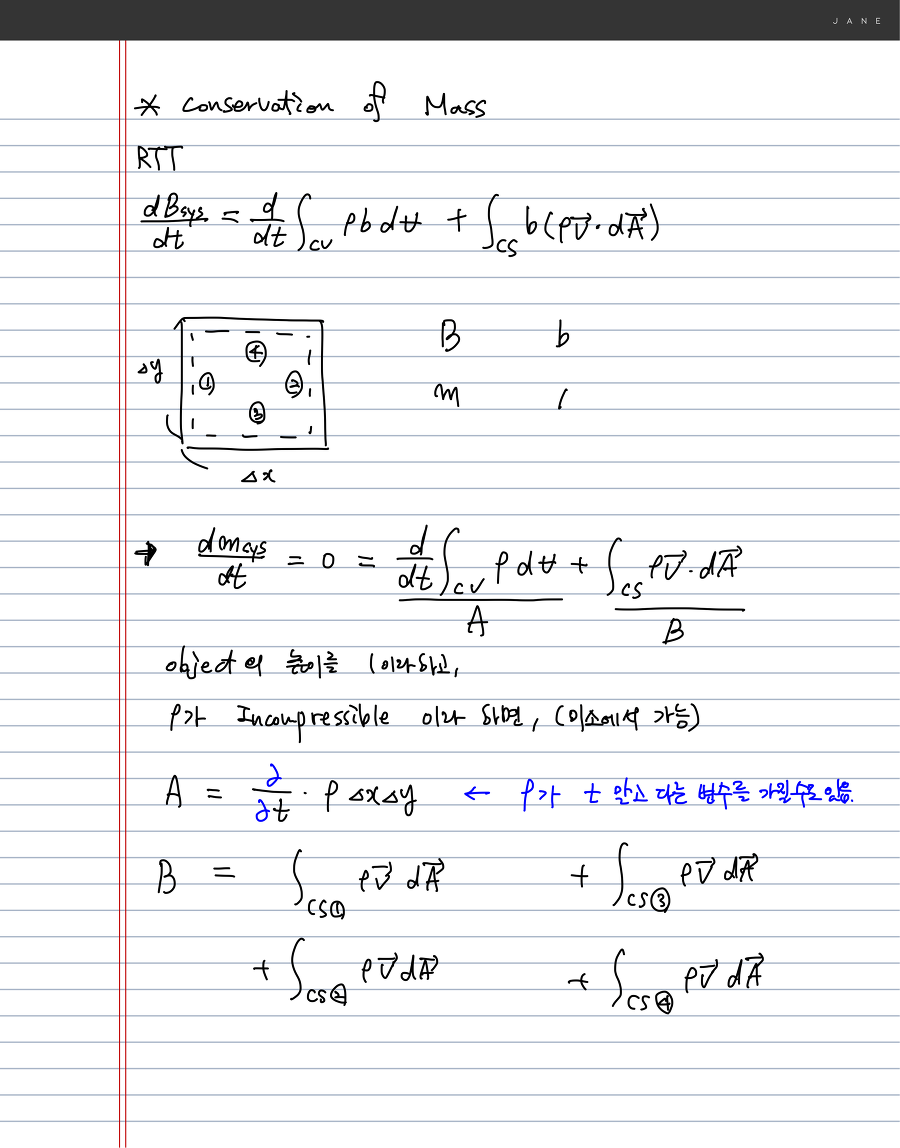 JANE
* Conservation of Mass
RTT
dBsys/dt = d/dt ∫cv ρb dV + ∫cs b(ρV⃗·dA⃗)
④
B b
Δy ① ②
m 1
③
Δx
→ dmsys/dt = 0 = d/dt ∫cv ρ dV + ∫cs ρV⃗·dA⃗
A B
object의 높이를 1이라하고,
ρ가 Incompressible 이라 하면, (미소에서 가능)
A = ∂/∂t · ρ Δx Δy ← ρ가 t 말고 다른 변수를 가질수도 있음.
B = ∫cs① ρV⃗ dA⃗ + ∫cs③ ρV⃗ dA⃗
+ ∫cs② ρV⃗ dA⃗ + ∫cs④ ρV⃗ dA⃗